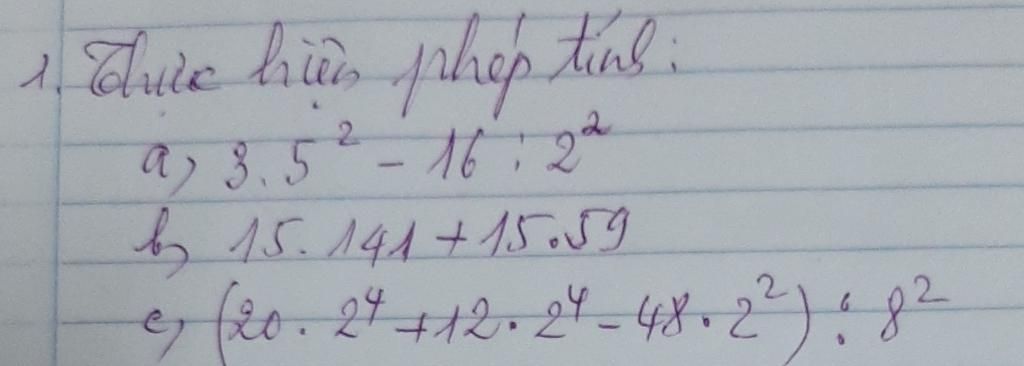 1. Thực hiện phép tính:
a) 3.5² - 16 : 2²
b) 15.141 + 15.59
c) (20.2⁴ + 12.2⁴ - 48.2²) : 8²